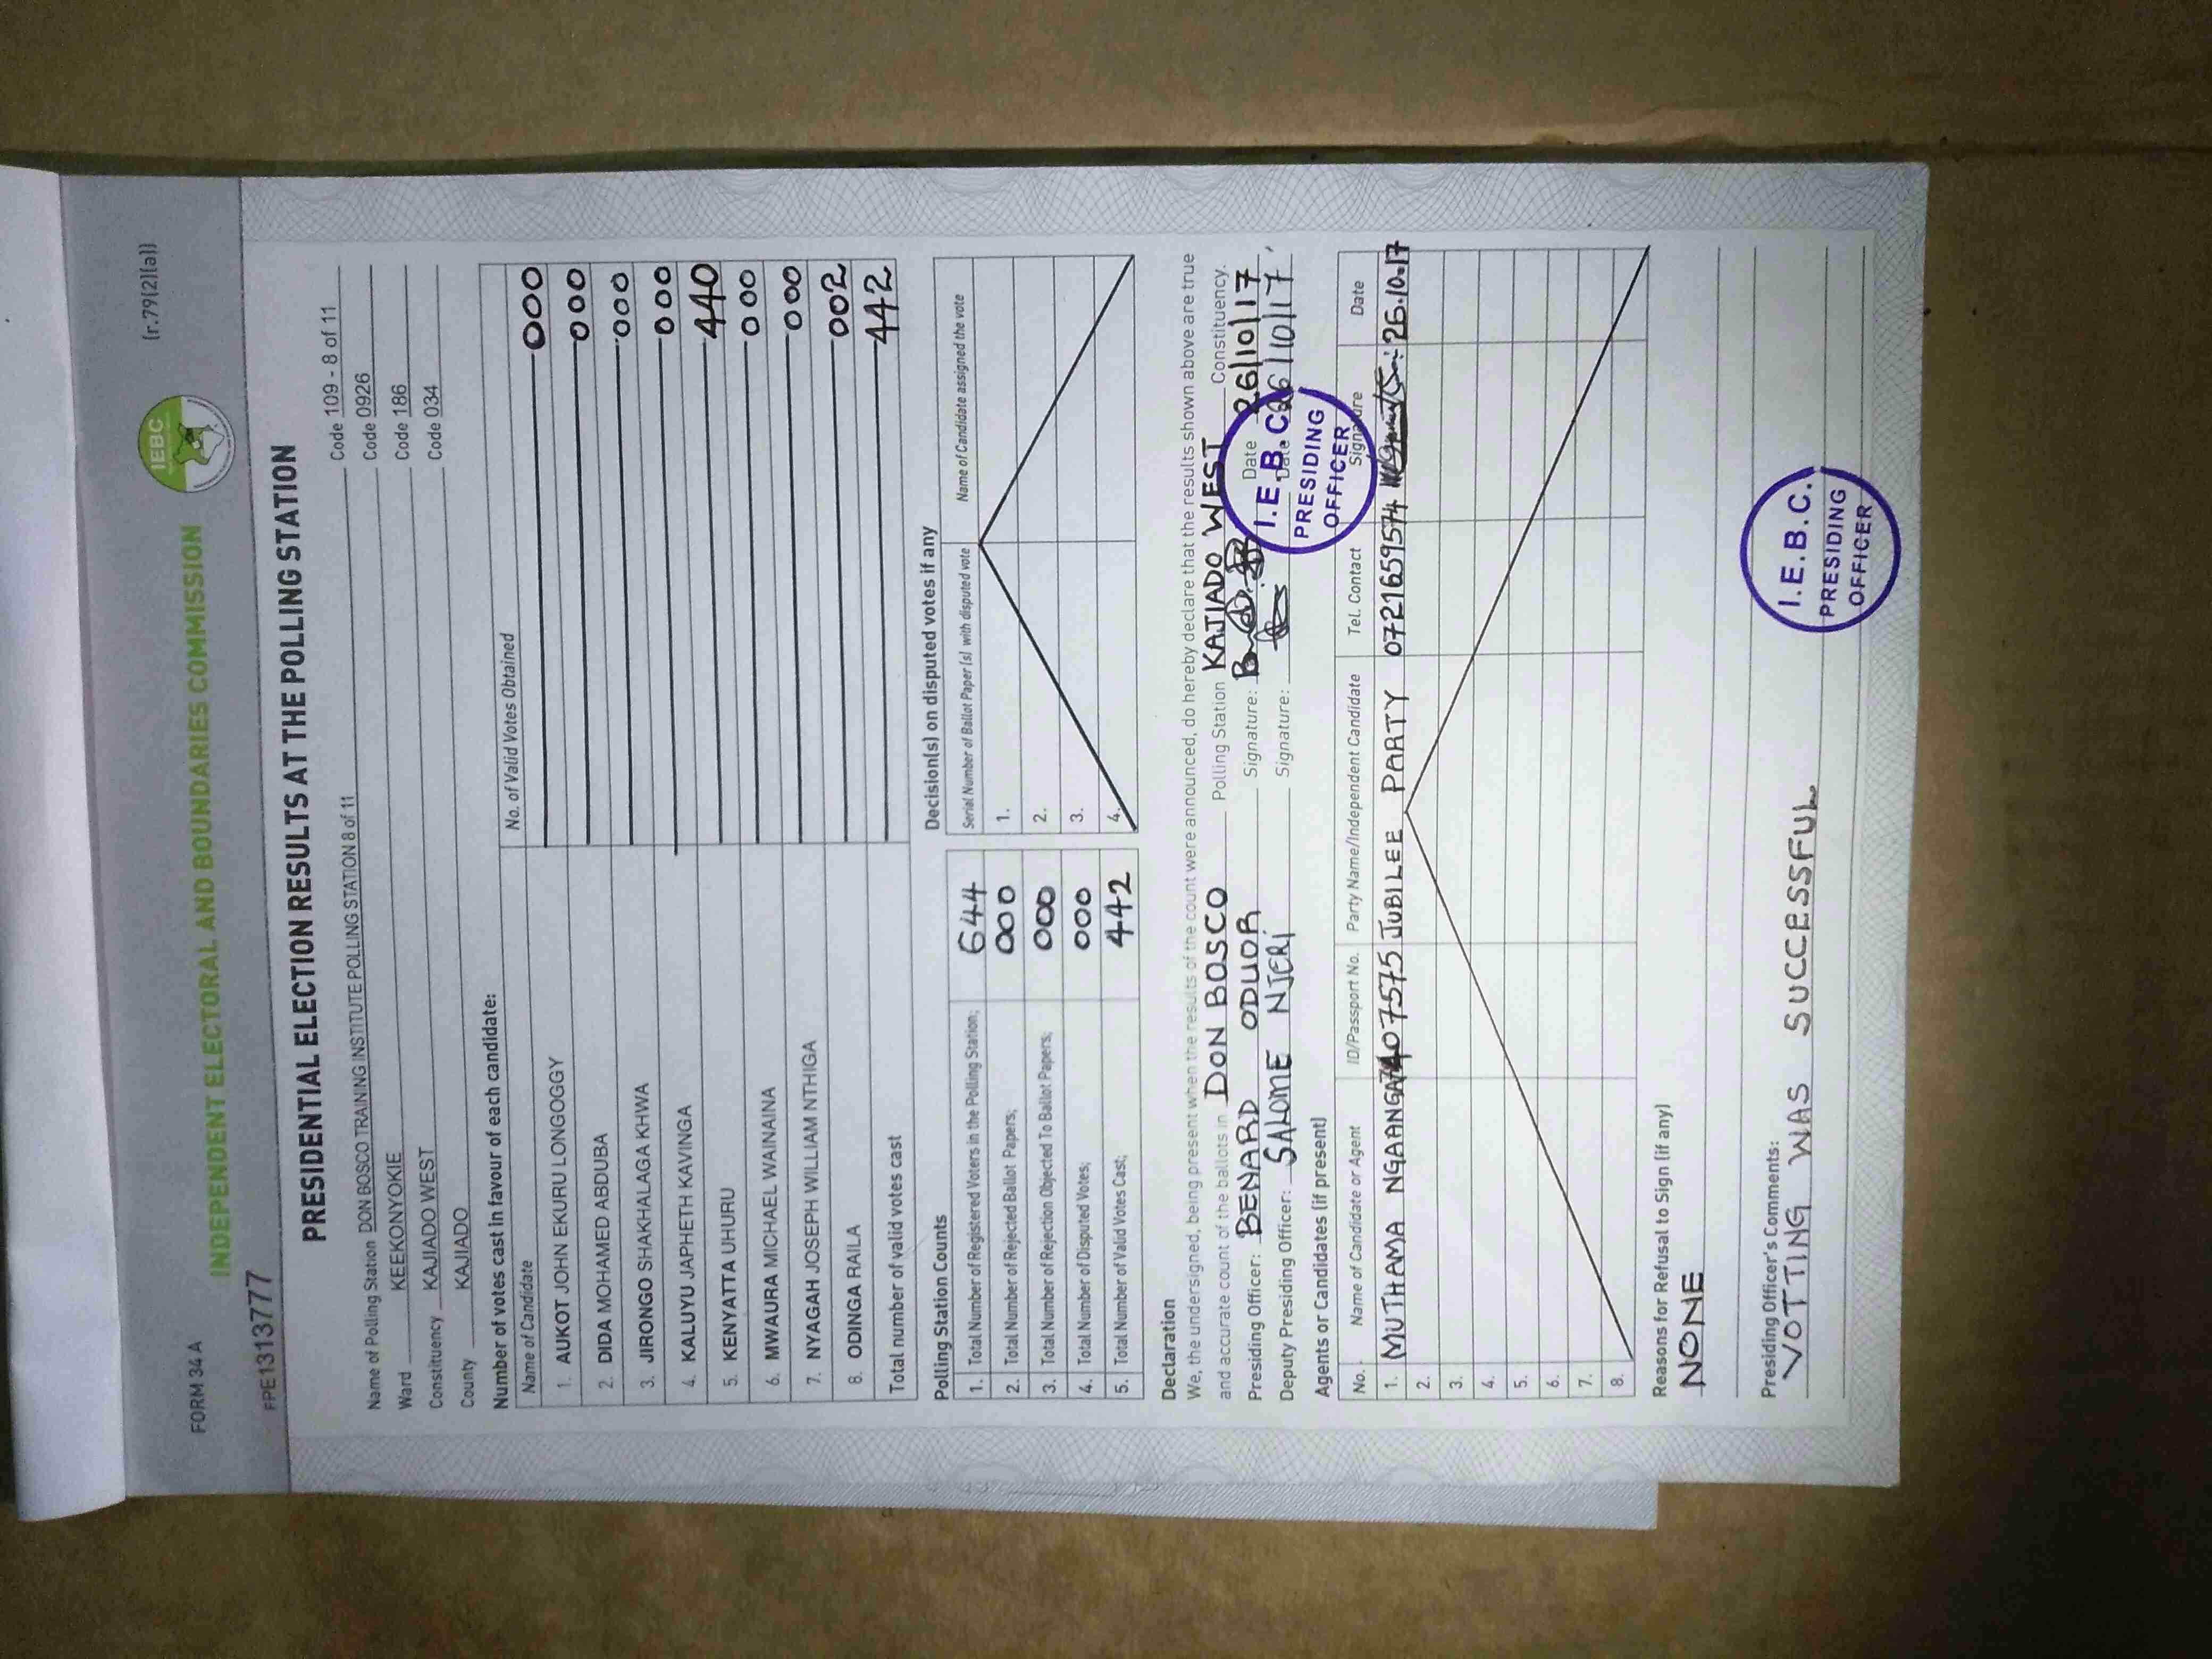 FORM 34 A
(r.79(2)(a))
IEBC
INDEPENDENT ELECTORAL AND BOUNDARIES COMMISSION
FPE1313777
PRESIDENTIAL ELECTION RESULTS AT THE POLLING STATION
Name of Polling Station DON BOSCO TRAINING INSTITUTE POLLING STATION 8 of 11 Code 109 - 8 of 11
Ward KEEKONYOKIE Code 0926
Constituency KAJIADO WEST Code 186
County KAJIADO Code 034
Number of votes cast in favour of each candidate:
Name of Candidate No. of Valid Votes Obtained
1. AUKOT JOHN EKURU LONGOGGY 000
2. DIDA MOHAMED ABDUBA 000
3. JIRONGO SHAKHALAGA KHWA 000
4. KALUYU JAPHETH KAVINGA 000
5. KENYATTA UHURU 440
6. MWAURA MICHAEL WAINAINA 000
7. NYAGAH JOSEPH WILLIAM NTHIGA 000
8. ODINGA RAILA 002
Total number of valid votes cast 442
Polling Station Counts
1. Total Number of Registered Voters in the Polling Station; 644
2. Total Number of Rejected Ballot Papers; 000
3. Total Number of Rejection Objected To Ballot Papers; 000
4. Total Number of Disputed Votes; 000
5. Total Number of Valid Votes Cast; 442
Decision(s) on disputed votes if any
Serial Number of Ballot Paper(s) with disputed vote Name of Candidate assigned the vote
1.
2.
3.
4.
Declaration
We, the undersigned, being present when the results of the count were announced, do hereby declare that the results shown above are true
and accurate count of the ballots in DON BOSCO Polling Station KAJIADO WEST Constituency.
Presiding Officer: BENARD ODUOR Signature: Date 26/10/17
Deputy Presiding Officer: SALOME NJERI Signature: Date 26/10/17
I.E.B.C.
PRESIDING
OFFICER
Agents or Candidates (if present)
No. Name of Candidate or Agent ID/Passport No. Party Name/Independent Candidate Tel. Contact Signature Date
1. MUTHAMA NGAANGA 7407575 JUBILEE PARTY 0721659574 26.10.17
2.
3.
4.
5.
6.
7.
8.
Reasons for Refusal to Sign (if any)
NONE
Presiding Officer's Comments:
VOTTING WAS SUCCESSFUL
I.E.B.C.
PRESIDING
OFFICER